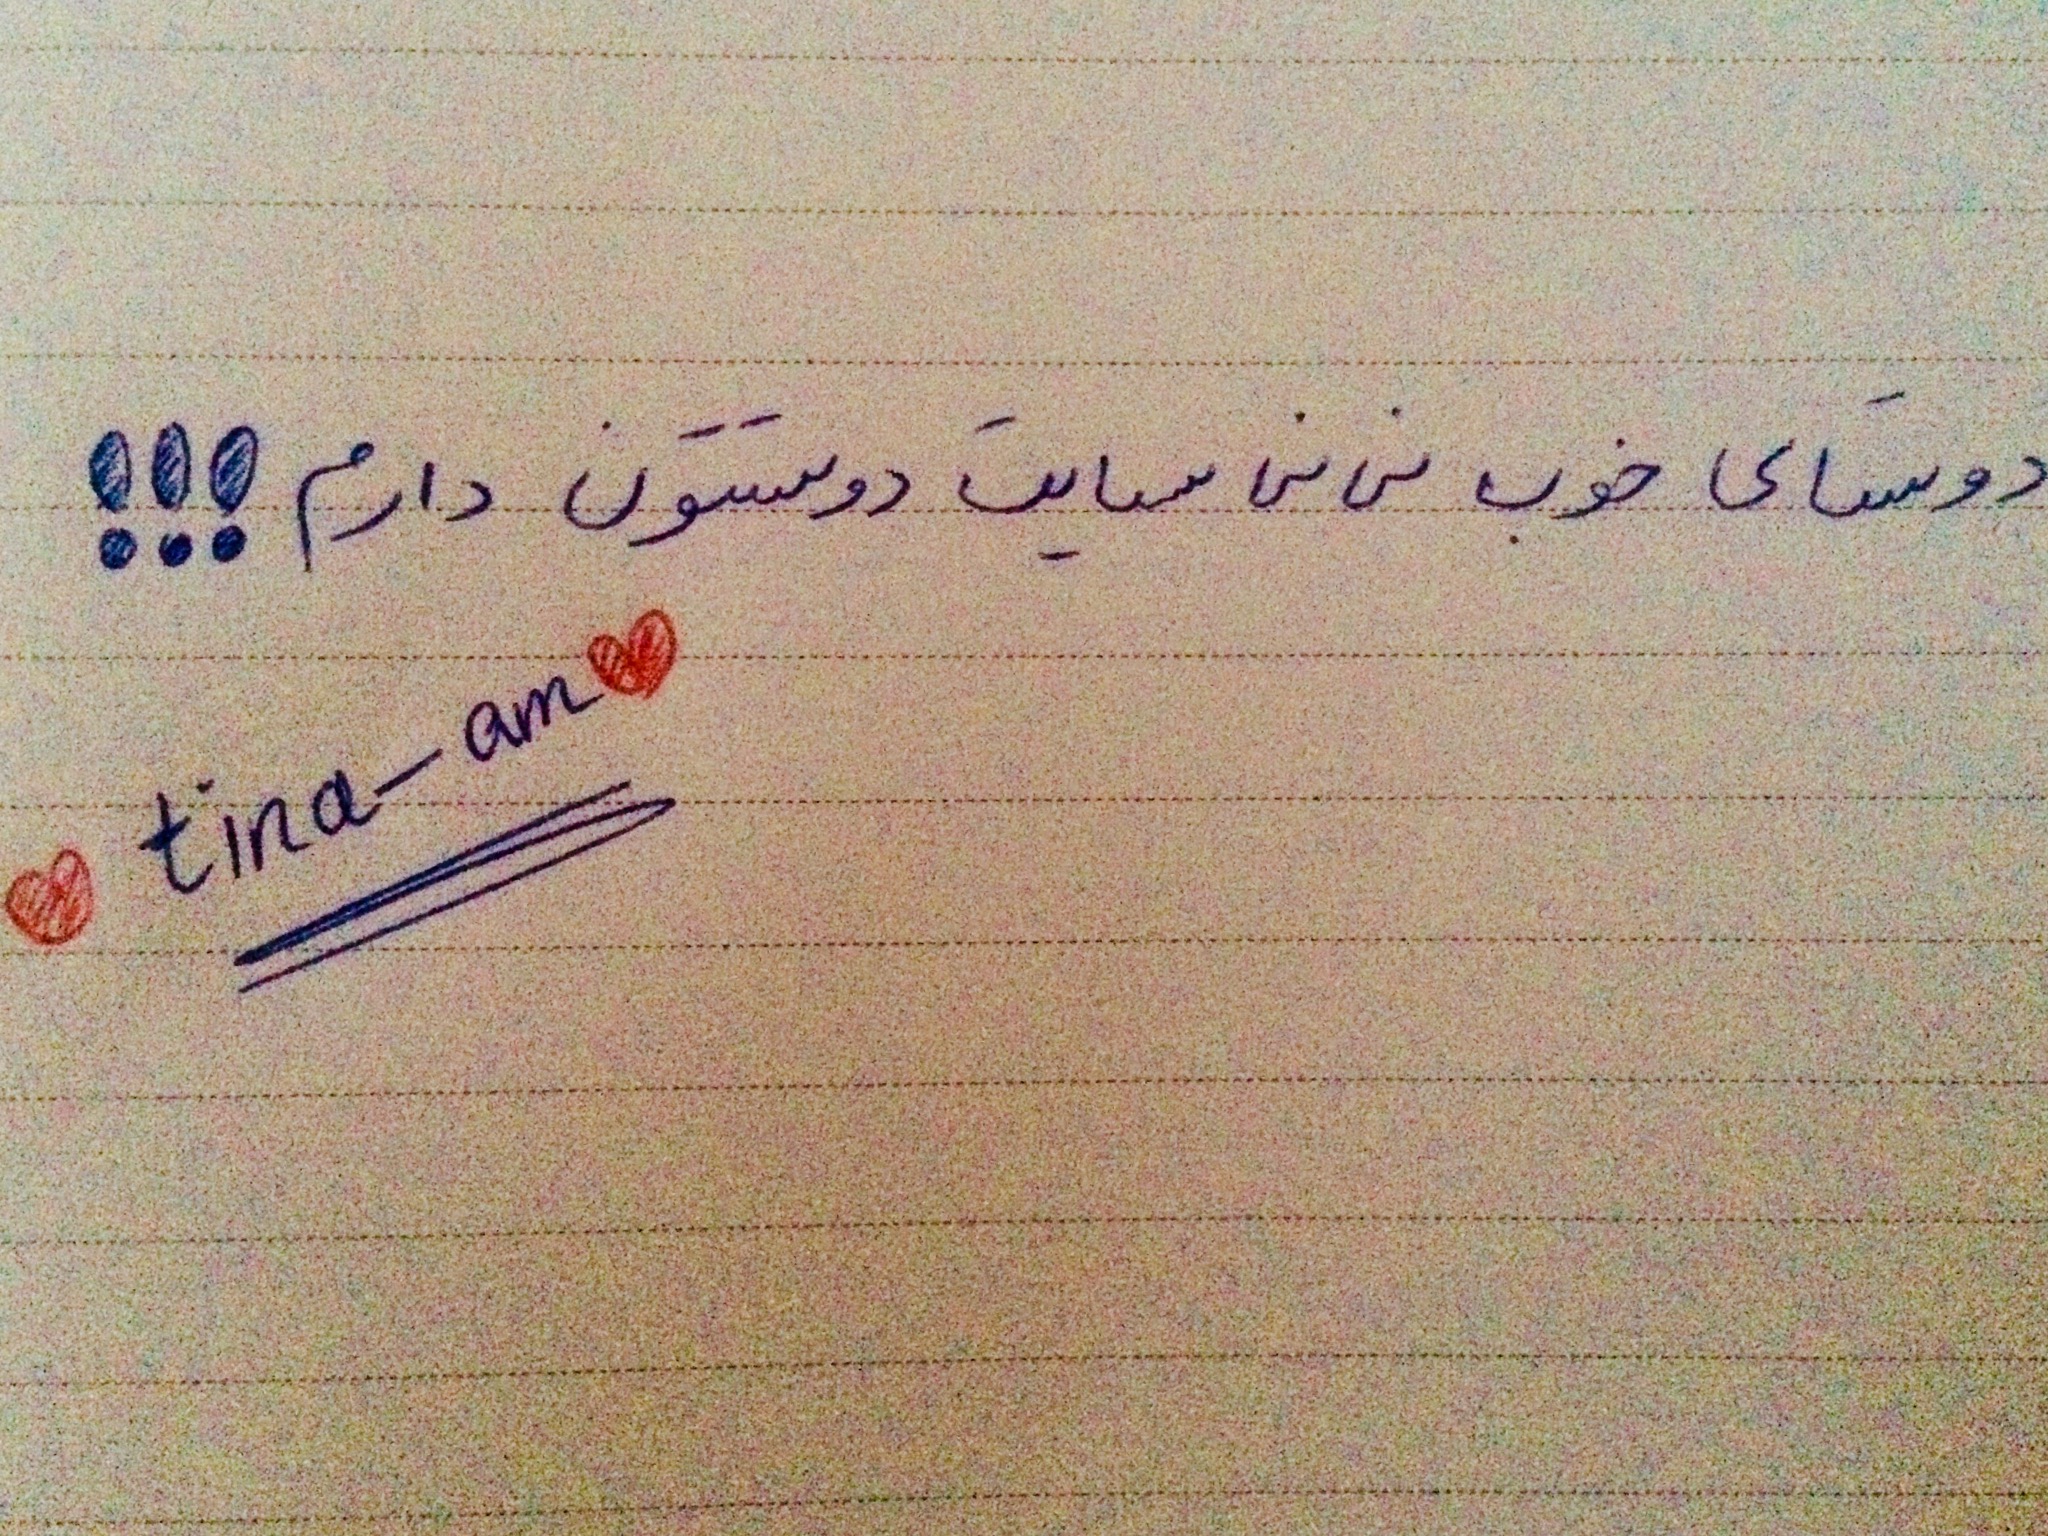 دوستای خوب نی نی سایت دوستتون دارم !!!
tina-am